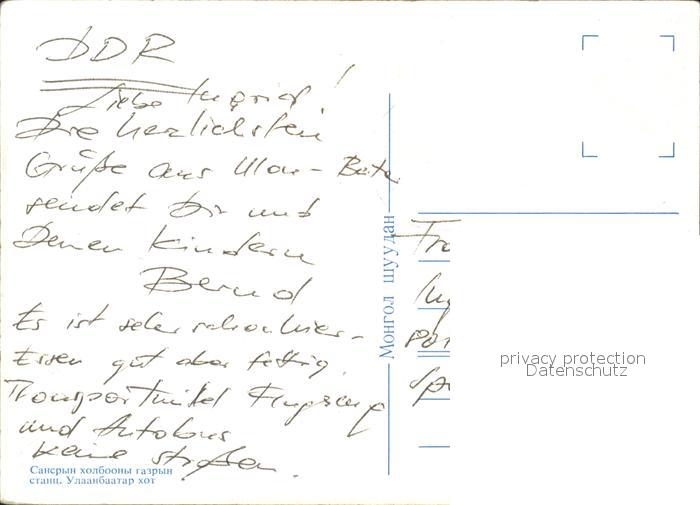 DDR
Liebe Ingrid!
Die herzlichsten
Grüße aus Ulan-Bator
sendet Dir und
Deinen Kindern
Bernd
Es ist sehr schön hier -
Essen gut aber fettig.
Transportmittel Flugzeug
und Autobus
keine Straßen.
Сансрын холбооны газрын
станц. Улаанбаатар хот
Монгол шуудан
Fra
In
privacy protection
Datenschutz